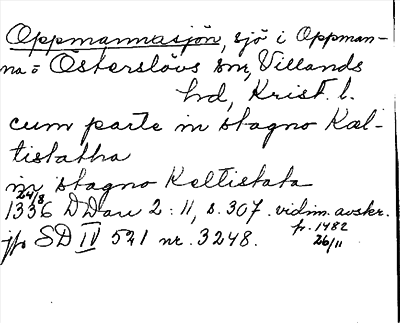 Oppmannasjön, sjö i Oppman-
na o Österslövs sm, Villands
hd, Krist. l.
cum parte in stagno Kæl-
tistatha
in stagno Keltistata
24/8
1336 DDan 2:11, s. 307. vidim. avskr.
fr. 1482
26/11
jfr SD IV 521 nr. 3248.